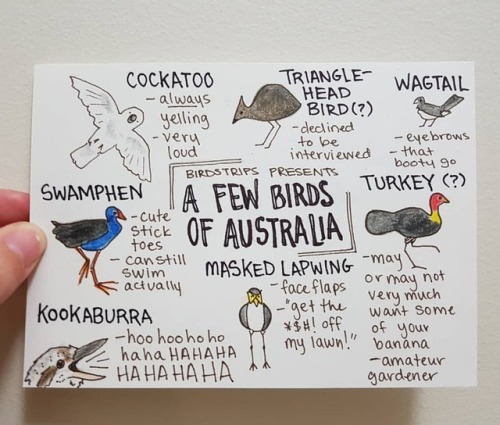 COCKATOO
- always
yelling
- very
loud
TRIANGLE-
HEAD
BIRD(?)
- declined
to be
interviewed
WAGTAIL
- eyebrows
- that
booty go
BIRDSTRIPS PRESENTS
A FEW BIRDS
OF AUSTRALIA
SWAMPHEN
- cute
stick
toes
- can still
swim
actually
TURKEY (?)
- may
or may not
very much
want some
of your
banana
- amateur
gardener
MASKED LAPWING
- face flaps
- "get the
*$#! off
my lawn!"
KOOKABURRA
- hoo hoo ho ho
ha ha HAHAHA
HA HA HA HA